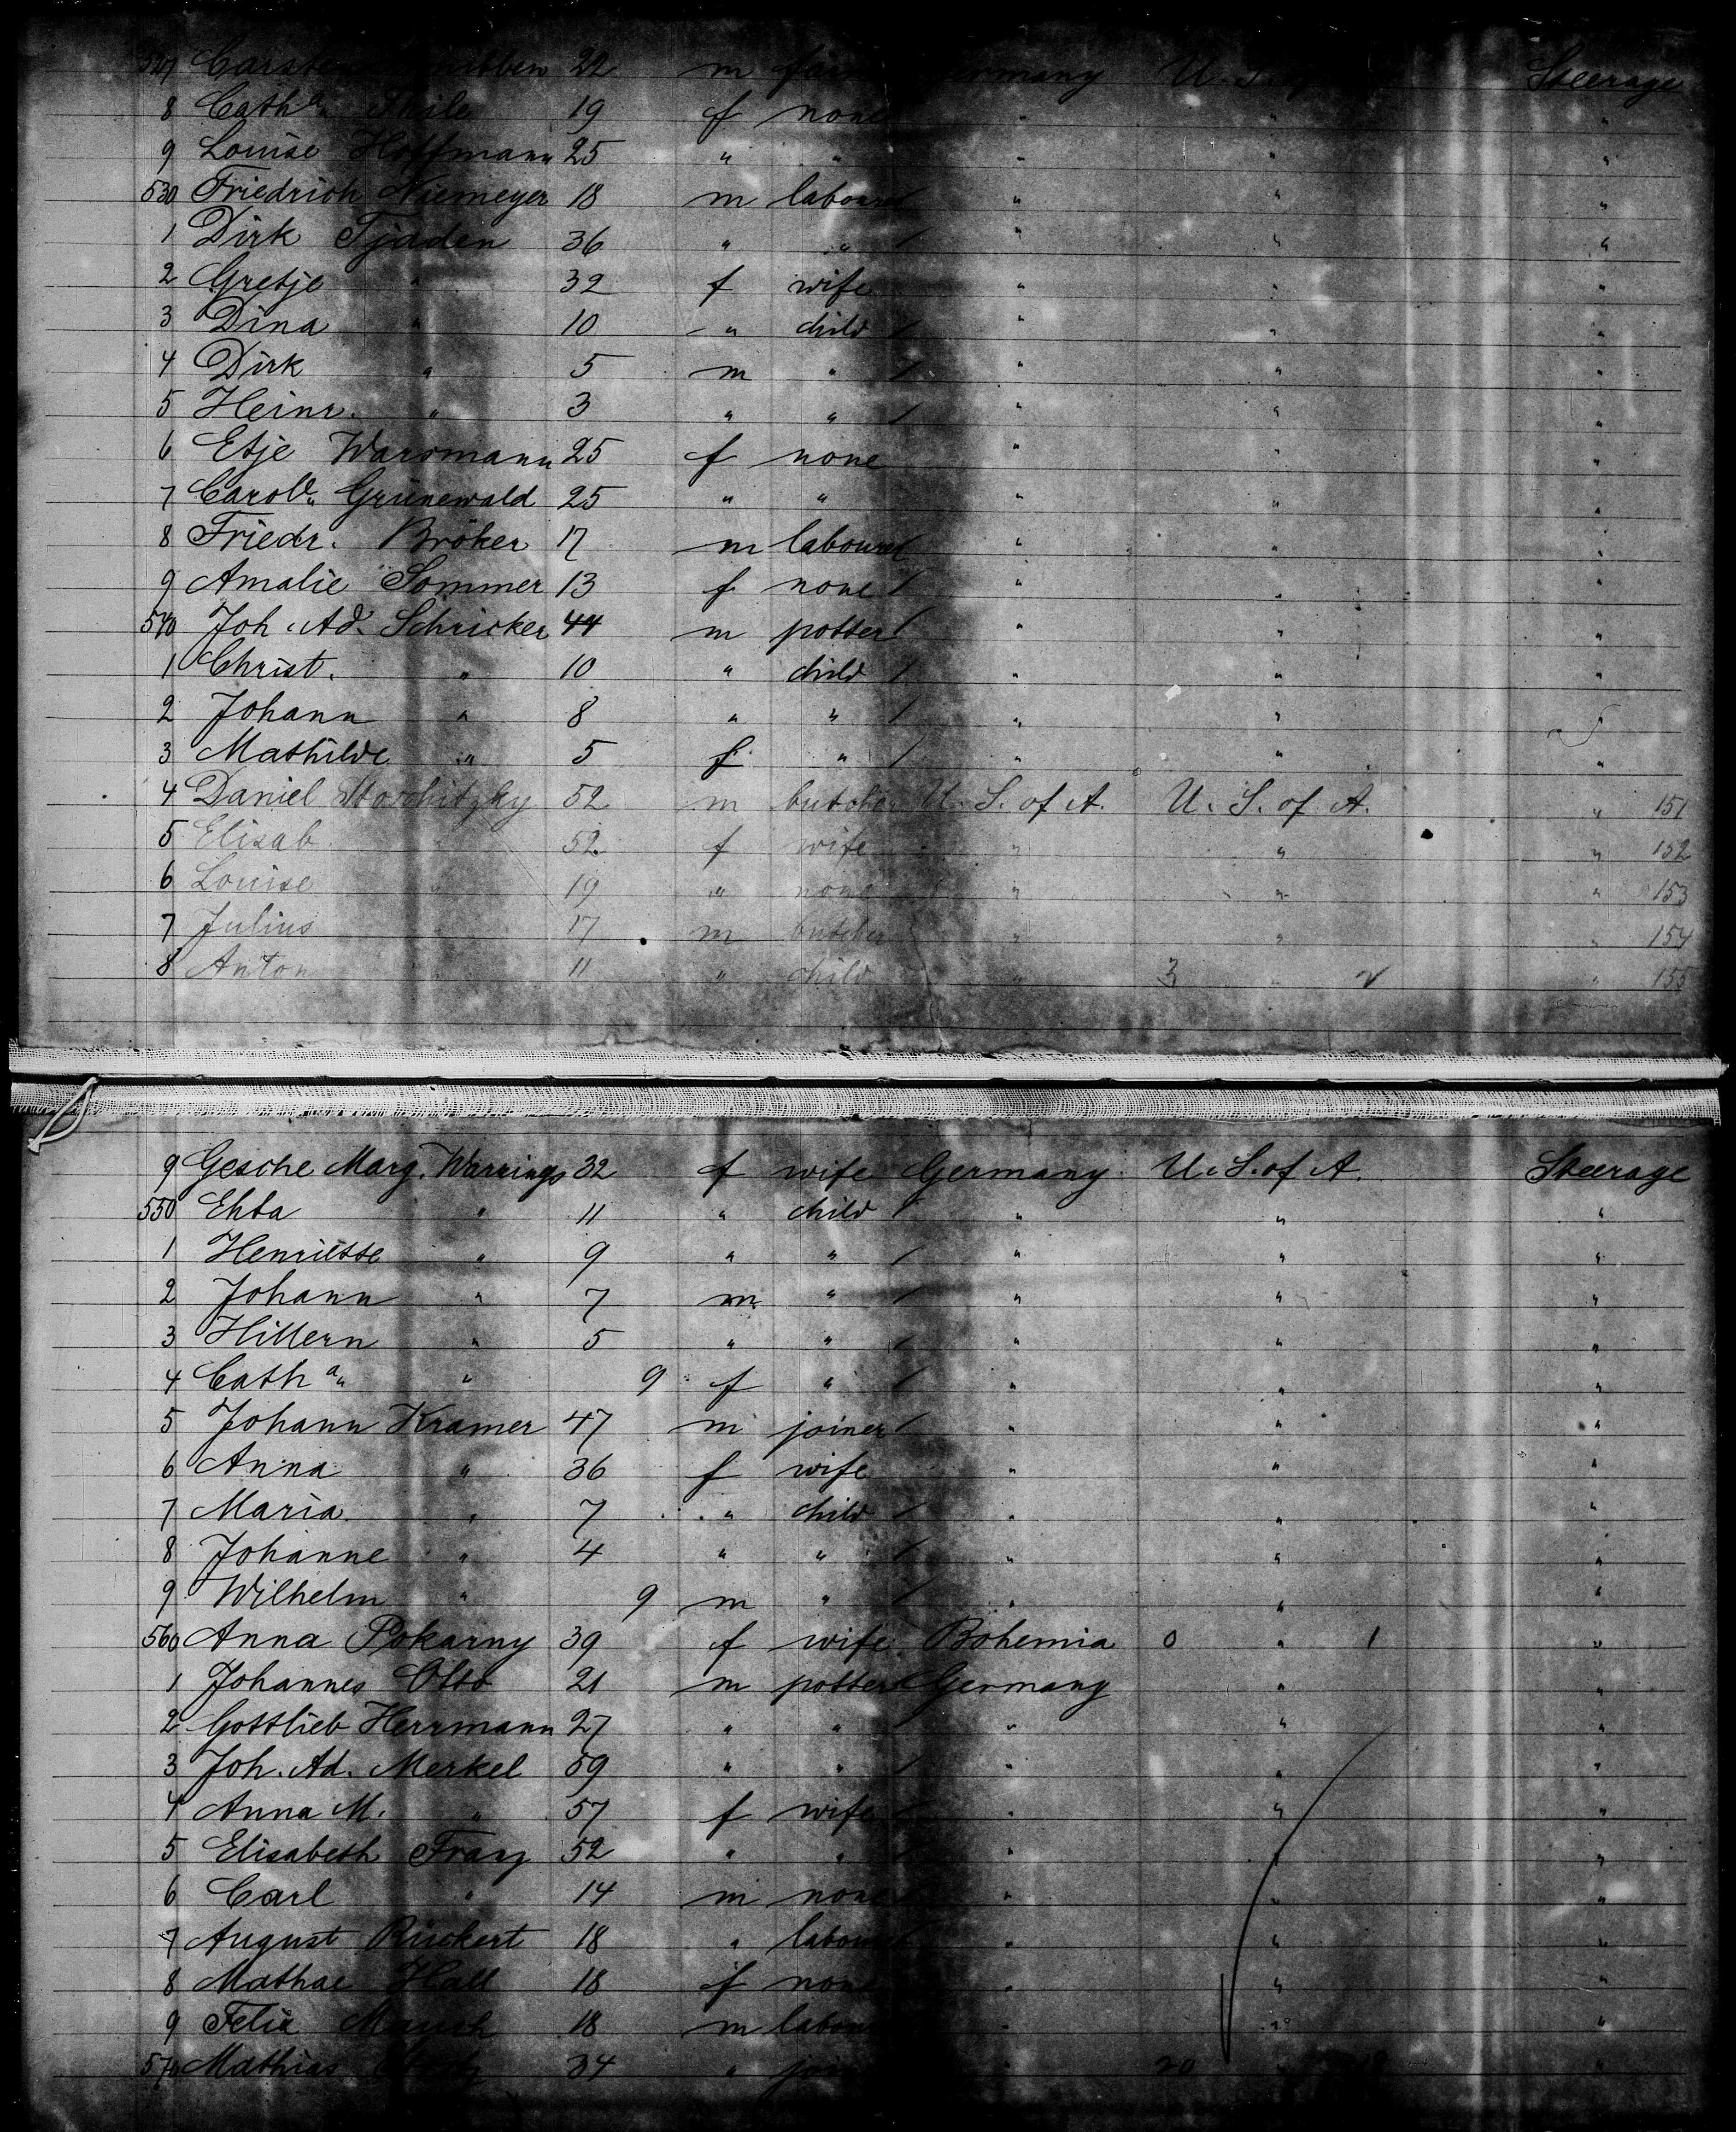 527 22 m Germany Steerage
8 Cath〃 Thile 19 f none 〃 〃 〃
9 Louise Hoffmann 25 〃 〃 〃 〃 〃
530 Friedrich Niemeyer 18 m labourer 〃 〃 〃
1 Dirk Tjaden 36 〃 〃 〃 〃 〃
2 Gretje 〃 32 f wife 〃 〃 〃
3 Dina 〃 10 〃 child 〃 〃 〃
4 Dirk 〃 5 m 〃 〃 〃 〃
5 Heinr. 〃 3 〃 〃 〃 〃 〃
6 Etje Warsmann 25 f none 〃 〃 〃
7 Carol〃 Grünewald 25 〃 〃 〃 〃 〃
8 Friedr. Bröker 17 m labourer 〃 〃 〃
9 Amalie Sommer 13 f none 〃 〃 〃
540 Joh. Ad. Schricker 44 m potter 〃 〃 〃
1 Christ. 〃 10 〃 child 〃 〃 〃
2 Johann 〃 8 〃 〃 〃 〃 〃
3 Mathilde 〃 5 f 〃 〃 〃 〃
4 Daniel 52 m butcher U. S. of A. U. S. of A. 〃 151
5 Elisab. 〃 52 f wife 〃 〃 〃 152
6 Louise 〃 19 〃 none 〃 〃 〃 153
7 Julius 〃 17 m butcher 〃 〃 〃 154
8 Anton 〃 11 〃 child 〃 3 〃 〃 155
9 Gesche Marg. Warrings 32 f wife Germany U. S. of A. Steerage
550 Ehta 〃 11 〃 child 〃 〃 〃
1 Henriette 〃 9 〃 〃 〃 〃 〃
2 Johann 〃 7 m 〃 〃 〃 〃
3 Hillern 〃 5 〃 〃 〃 〃 〃
4 Cath a〃 〃 9 f 〃 〃 〃 〃
5 Johann Kramer 47 m joiner 〃 〃 〃
6 Anna 〃 36 f wife 〃 〃 〃
7 Maria 〃 7 〃 child 〃 〃 〃
8 Johanne 〃 4 〃 〃 〃 〃 〃
9 Wilhelm 〃 9 m 〃 〃 〃 〃
560 Anna Pokarny 39 f wife Bohemia 0 〃 1 〃
1 Johannes Otto 21 m potter Germany 〃 〃
2 Gottlieb Herrmann 27 〃 〃 〃 〃 〃
3 Joh. Ad. Merkel 59 〃 〃 〃 〃 〃
4 Anna M. 〃 57 f wife 〃 〃 〃
5 Elisabeth 52 〃 〃 〃 〃 〃
6 Carl 〃 14 m none 〃 〃 〃
7 August Rückert 18 〃 labourer 〃 〃 〃
8 Mathae Hall 18 f none 〃 〃 〃
9 Felix 18 m 〃 〃 〃
570 Mathias 34 〃 20 〃